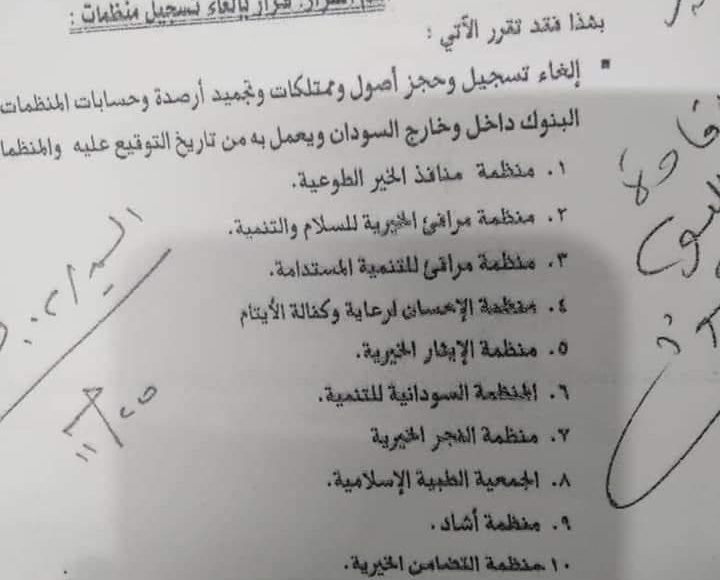 قرار بإلغاء تسجيل منظمات :
بهذا فقد تقرر الآتي :
▪ إلغاء تسجيل وحجز أصول وممتلكات وتجميد أرصدة وحسابات المنظمات
البنوك داخل وخارج السودان ويعمل به من تاريخ التوقيع عليه والمنظما
١. منظمة منافذ الخير الطوعية.
٢. منظمة مرافئ الخيرية للسلام والتنمية.
٣. منظمة مرافئ للتنمية المستدامة.
٤. منظمة الإحسان لرعاية وكفالة الأيتام
٥. منظمة الإيثار الخيرية.
٦. المنظمة السودانية للتنمية.
٧. منظمة الفجر الخيرية
٨. الجمعية الطبية الإسلامية.
٩. منظمة أشاد.
١٠. منظمة التضامن الخيرية.